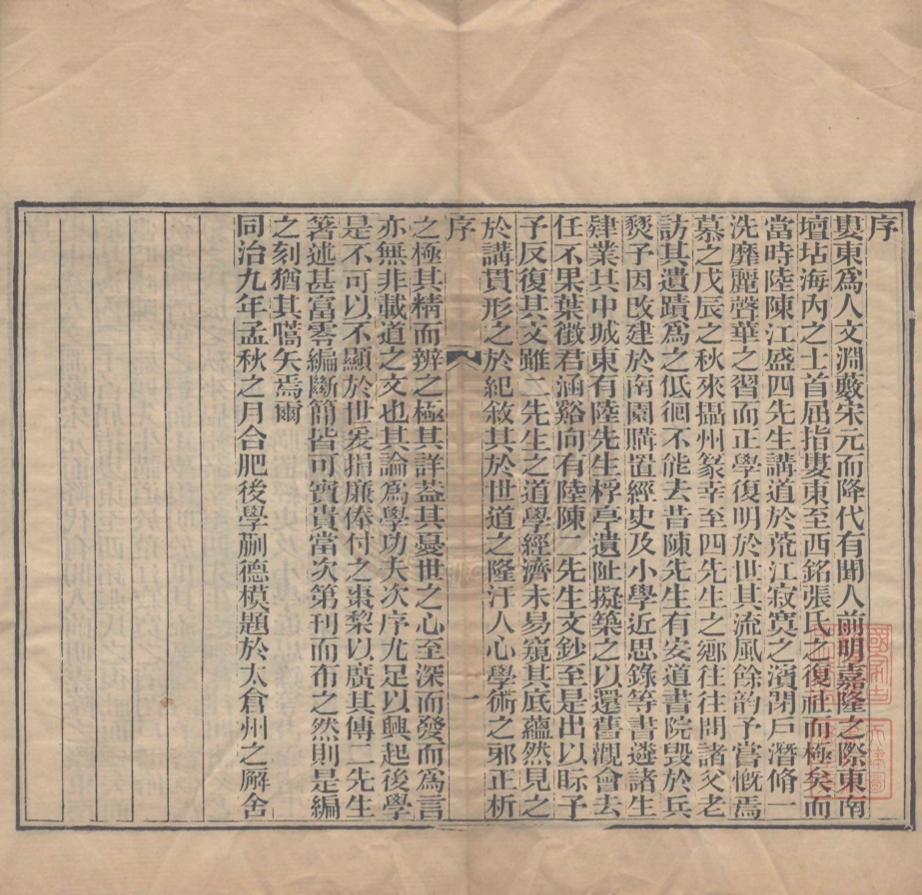 序
婁東爲人文淵藪宋元而降代有聞人前明嘉隆之際東南
壇坫海内之士首屈指婁東至西銘張氏之復社而極矣而
當時陸陳江盛四先生講道於荒江寂寞之濱閉戶潛脩一
洗靡麗聲華之習而正學復明於世其流風餘韵予嘗慨焉
慕之戊辰之秋來攝州篆幸至四先生之鄉往往問諸父老
訪其遺蹟爲之低徊不能去昔陳先生有安道書院毀於兵
燹予因改建於南園購置經史及小學近思錄等書遴諸生
肄業其中城東有陸先生桴亭遺阯擬築之以還舊觀會去
任不果葉徵君涵谿向有陸陳二先生文鈔至是出以眎予
予反復其文雖二先生之道學經濟未易窺其底蘊然見之
於講貫形之於紀敘其於世道之隆汙人心學術之邪正析
序 一
之極其精而辨之極其詳葢其憂世之心至深而發而爲言
亦無非載道之文也其論爲學功夫次序尤足以興起後學
是不可以不顯於世爰捐廉俸付之棗棃以廣其傳二先生
箸述甚富零編斷簡皆可寶貴當次第刊而布之然則是編
之刻猶其嚆矢焉爾
同治九年孟秋之月合肥後學蒯德模題於太倉州之廨舍